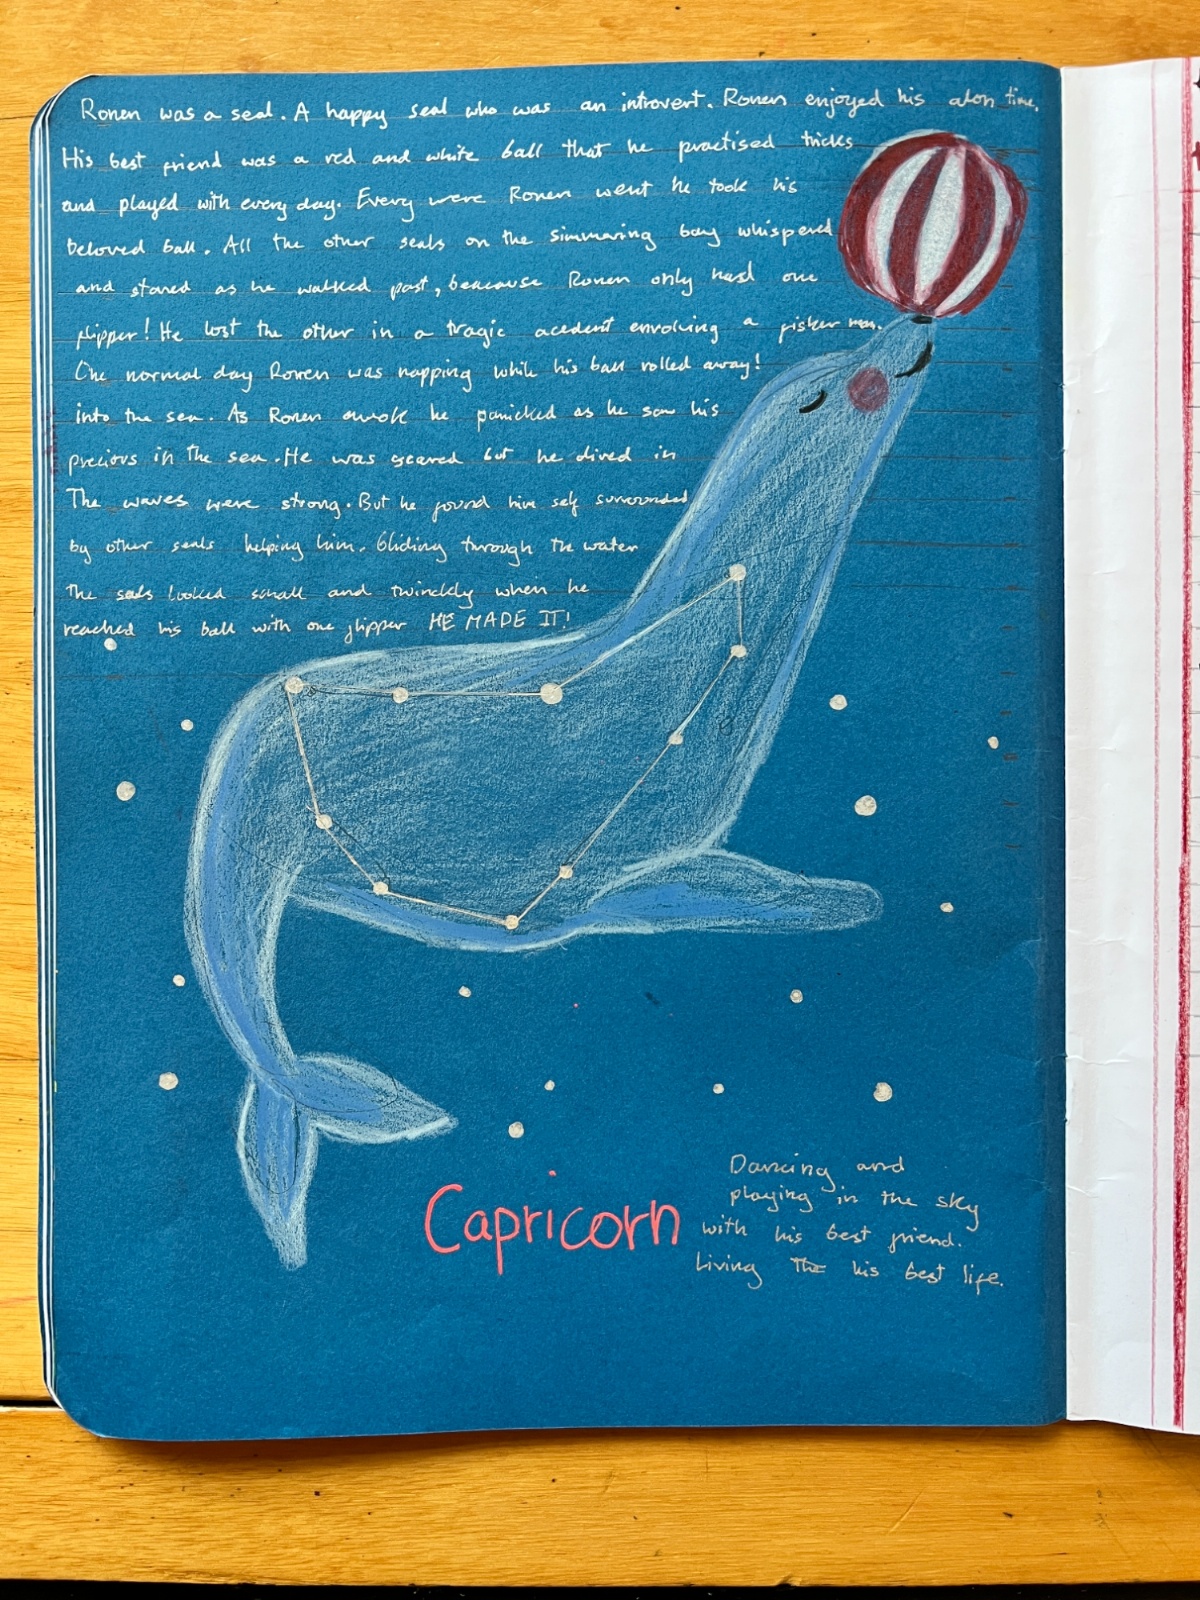 Ronen was a seal. A happy seal who was an introvert. Ronen enjoyed his alon time.
His best friend was a red and white ball that he practised tricks
and played with every day. Every were Ronen went he took his
beloved ball. All the other seals on the simmaring bay whispered
and stared as he walked past, beacause Ronen only had one
flipper! He lost the other in a tragic acedent envolving a fisher man.
One normal day Ronen was napping while his ball rolled away!
into the sea. As Ronen awok he panicked as he saw his
precious in the sea. He was sceared but he dived in
The waves were strong. But he found him self surrounded
by other seals helping him. Gliding through the water
the seals looked small and twinckly when he
reached his ball with one flipper HE MADE IT!
Capricorn
Dancing and
playing in the sky
with his best friend.
Living the his best life.